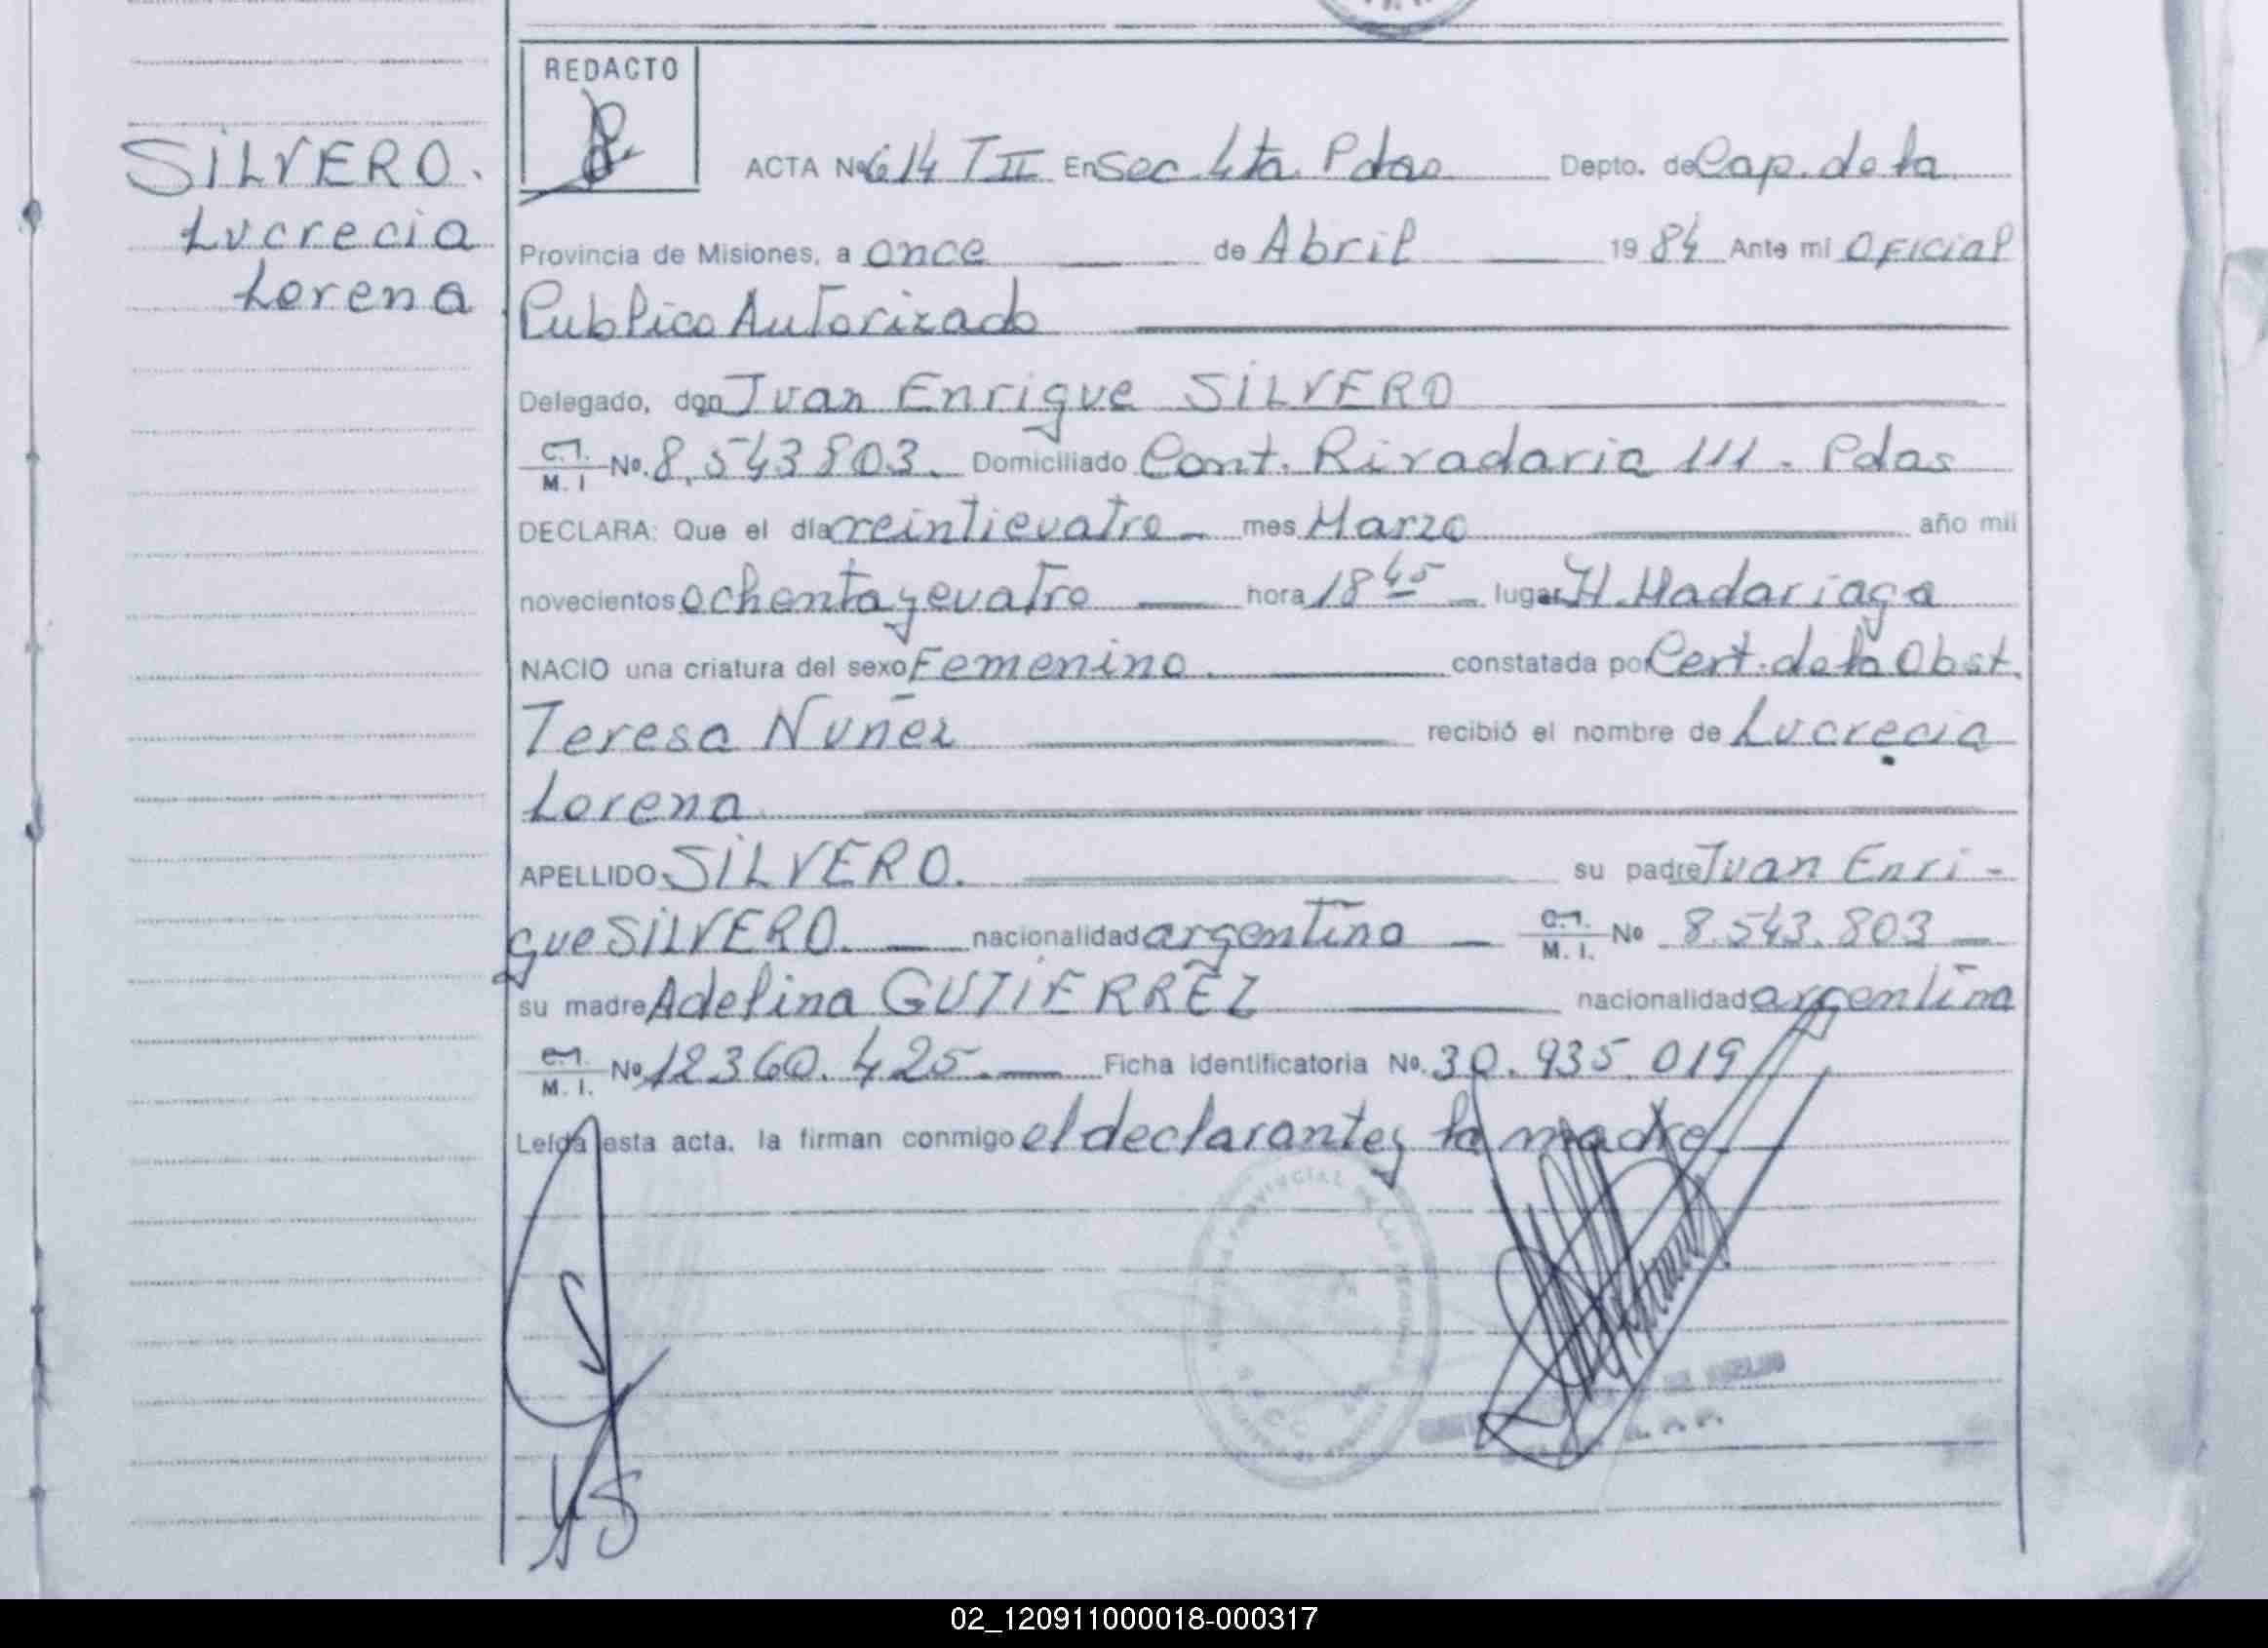 REDACTO
SILVERO.
Lucrecia
Lorena
ACTA No 614 T II En Sec. 4ta. Pdas Depto. de Cap. de la
Provincia de Misiones, a once de Abril 19 84 Ante mi Oficial
Publico Autorizado
Delegado, don Juan Enrique SILVERO
C.I. M. I No. 8,543803. Domiciliado Cont. Rivadavia 111 - Pdas
DECLARA: Que el día veinticuatro mes Marzo año mil
novecientos ochenta y cuatro hora 18 45 lugar H. Madariaga
NACIO una criatura del sexo Femenino. constatada por Cert. de la Obst.
Teresa Nuñez recibió el nombre de Lucrecia
Lorena
APELLIDO SILVERO. su padre Juan Enri-
que SILVERO. nacionalidad argentino C.I. M. I. No 8.543.803
su madre Adelina GUTIERREZ nacionalidad argentina
C.I. M. I. No 12360.425. Ficha Identificatoria No. 30.935.019
Leída esta acta, la firman conmigo el declarante y la madre.
02_120911000018-000317